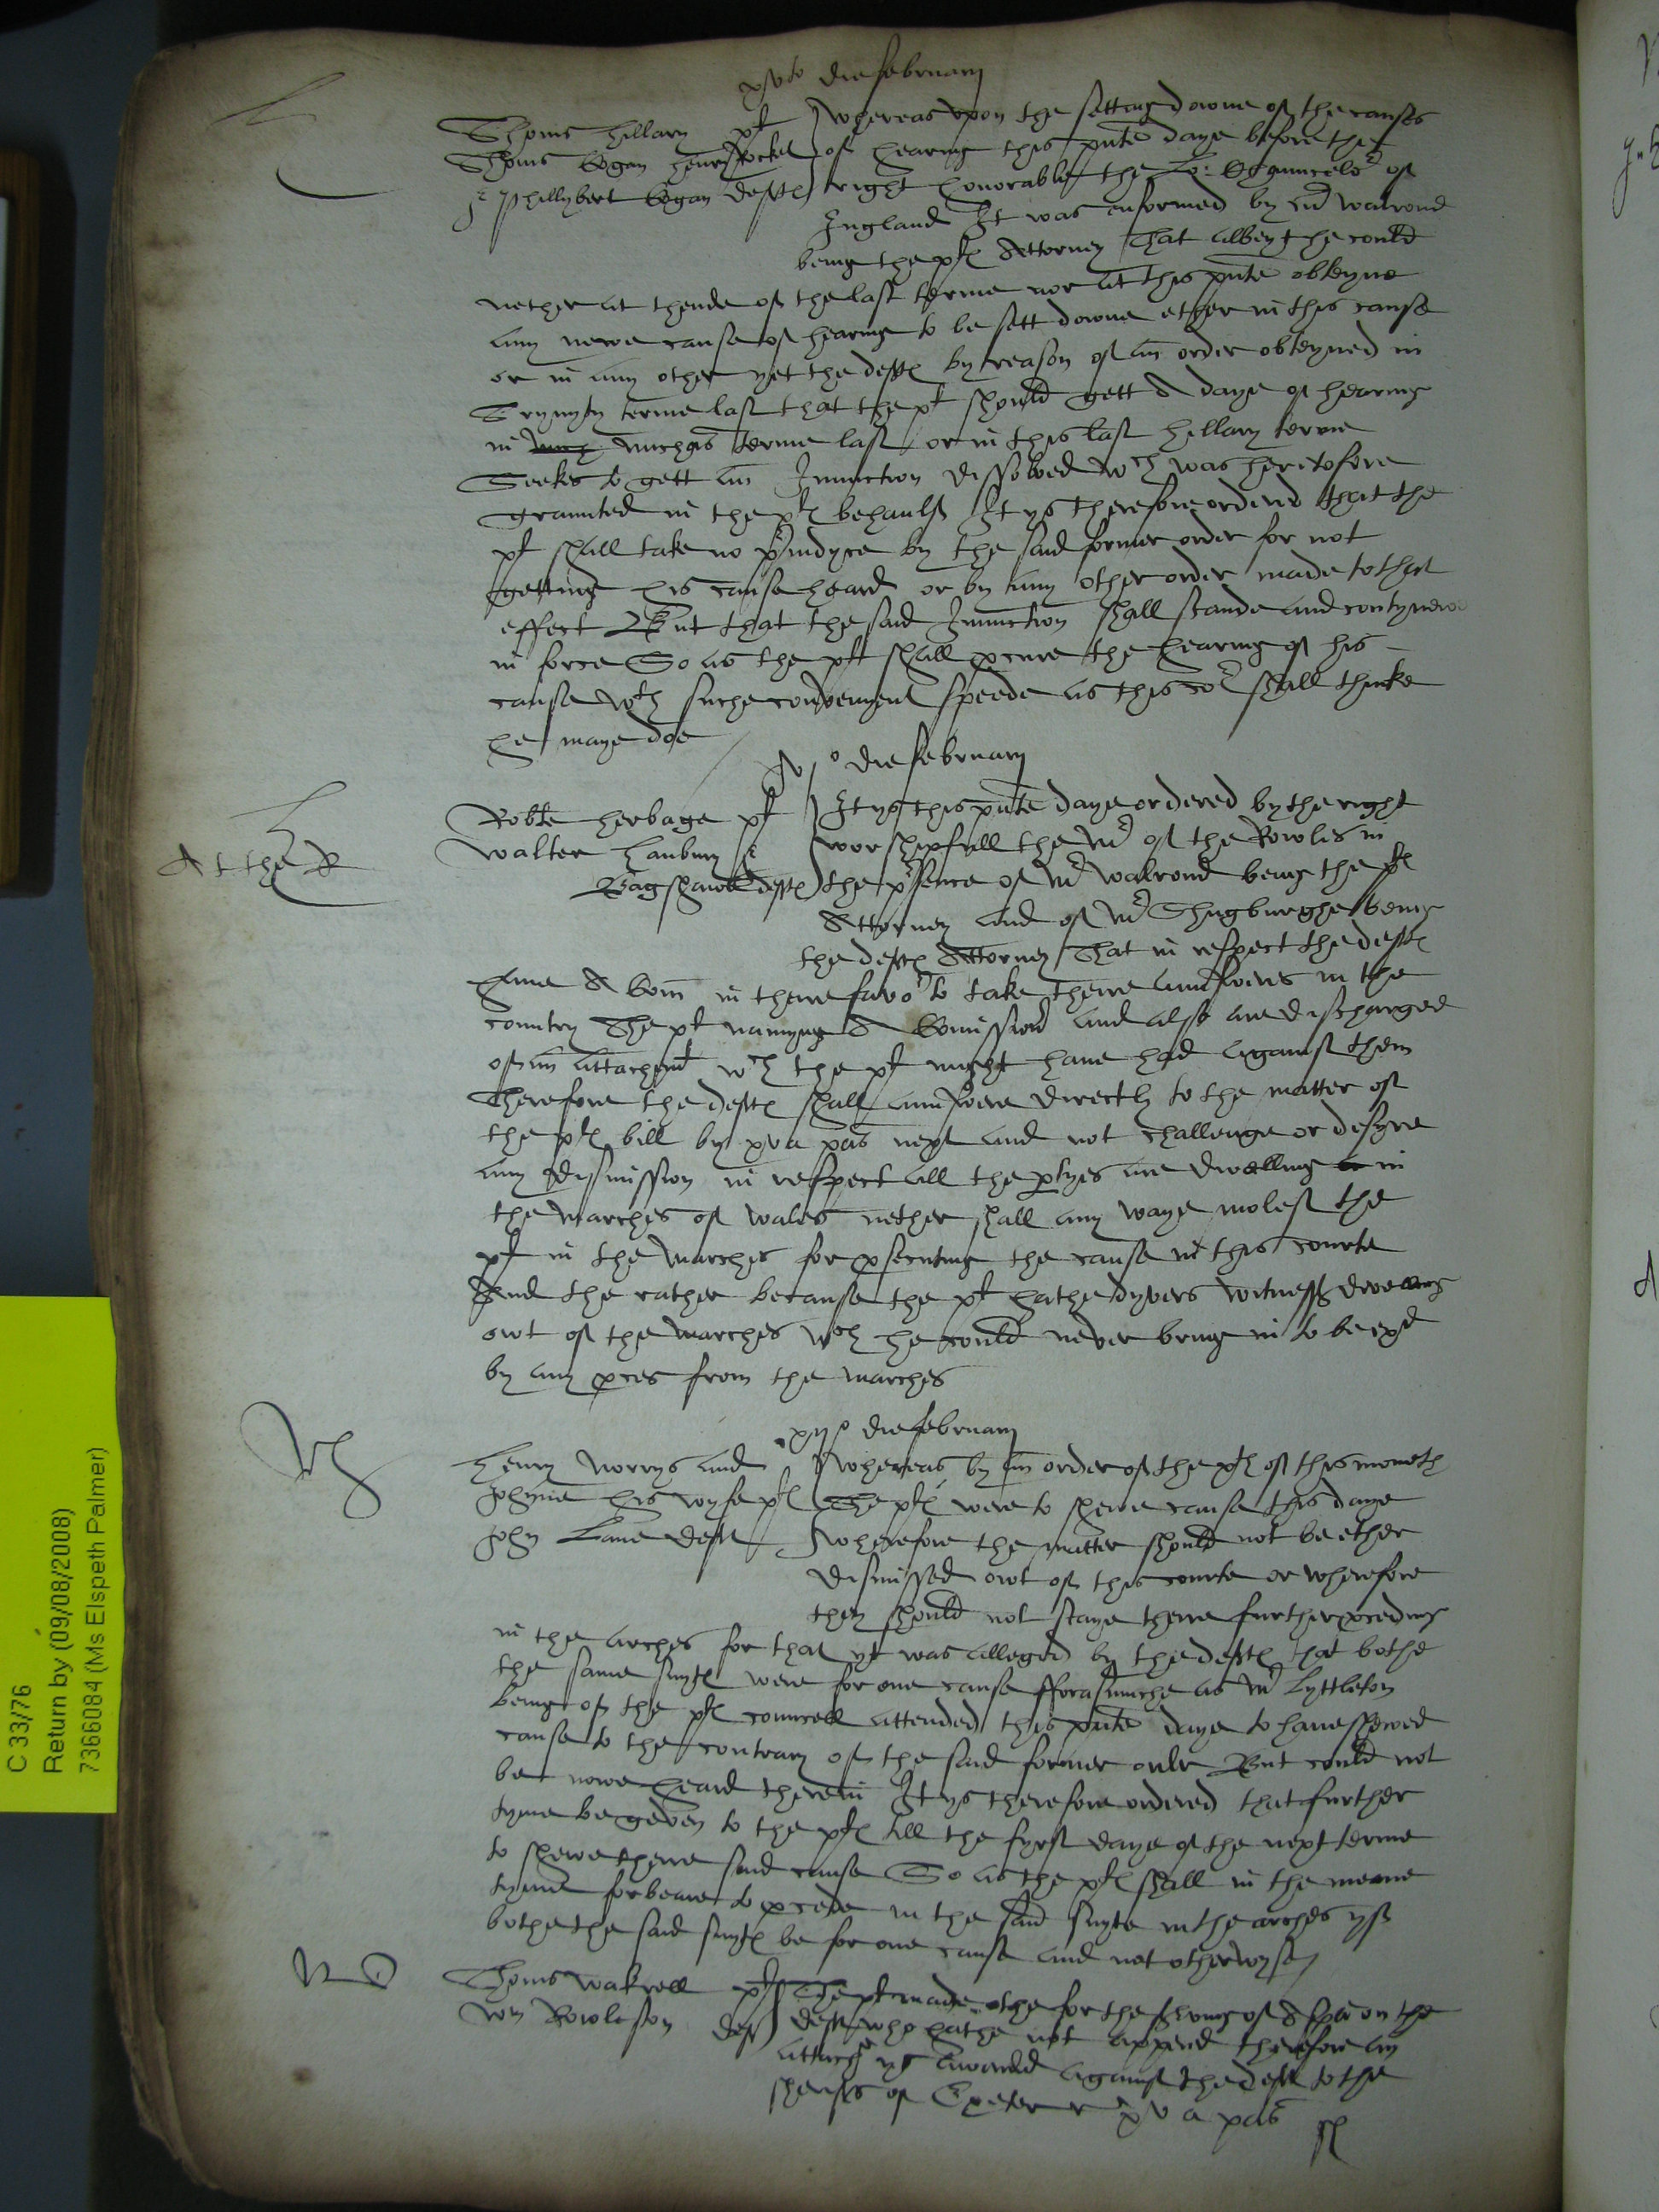 xvto die februarij
Thoms hillary pt
Thoms Cogan henry
& Phillybert Cogan deftes
whereas vpon the setting downe of the causes
of hearing this pnte daye before the
right honorable the Lo: Chauncelor of
England It was informed by mr walrond
being the ptes Attorney That albeyt he could
nether at thende of the last terme nor at this pnte obteyne
any newe cause of hearing to be sett downe ether in this cause
or in any other yet the deftes by reason of an order obteyned in
Trynyty terme last that the pt should gett A daye of hearing
in michas terme last or in this last hillary terme
Seekes to gett an Iniunction dissolved wch was heretofore
graunted in the ptes behaulf It ys therefore ordered that the
pt shall take no preiudyce by the said former order for not
getting his cause heard or by any other order made to that
effect But that the said Iniunction shall stande and contynewe
in force So as the plt shall pcure the hearing of his
cause wth suche convenyent speede as this cort shall thinke
he maye doe
die februarij
At the R
Robte herbage pt
walter hanbury &
Bagshawe deftes
It ys this pnte daye ordered by the right
worshipfull the mr of the Rowles in
the presence of mr walrond being the ptes
Attorney and of mr Shugburghe being
the deftes Attorney That in respect the deftes
have A Com in theire favor to take theire aunsweres in the
country The pt namyng A Comissionr and also are discharged
of an attachmt wch the pt might have had against them
Therefore the deftes shall aunswere directly to the matter of
the ptes bill by xva pas next and not challenge or desyre
any dismission in respect all the ptyes are dwelling in
the marches of wales nether shall any waye molest the
pt in the marches for psecuting the cause in this courte
And the rather because the pt hathe dyvers witnesses dwelling
owt of the marches wch he could never bring in to be exd
by any pces from the marches
xijo die februarij
henry norrys and
Johane his wyfe ptes
John Lane deft
whereas by an order of the xth of this moneth
The ptes were to shewe cause this daye
wherefore the matter should not be ether
dismissed owt of this courte or wherefore
they should not staye theire further pceding
in the arches for that yt was alleged by the deftes that bothe
the same suytes were for one cause fforasmuche as mr Lyttleton
being of the ptes councell attended this pnte daye to have shewed
cause to the contrary of the said former ordr But could not
be nowe heard therein It ys therefore ordered that further
tyme be geven to the ptes till the fyrst daye of the next terme
to shewe theire said cause So as the ptes shall in the meane
tyme forbeare to pcede in the said suyte in the arches yf
bothe the said suytes be for one cause and not otherwyse
Thoms wakrell pt
wm Rowleston def
The pt made othe for the serving of A spa on the
deft who hathe not apperd therefore an
attachmt ys awarded against the deft to the
sherifs of Exeter r xva pas
C 33/76
Return by (09/08/2008)
7366084 (Ms Elspeth Palmer)